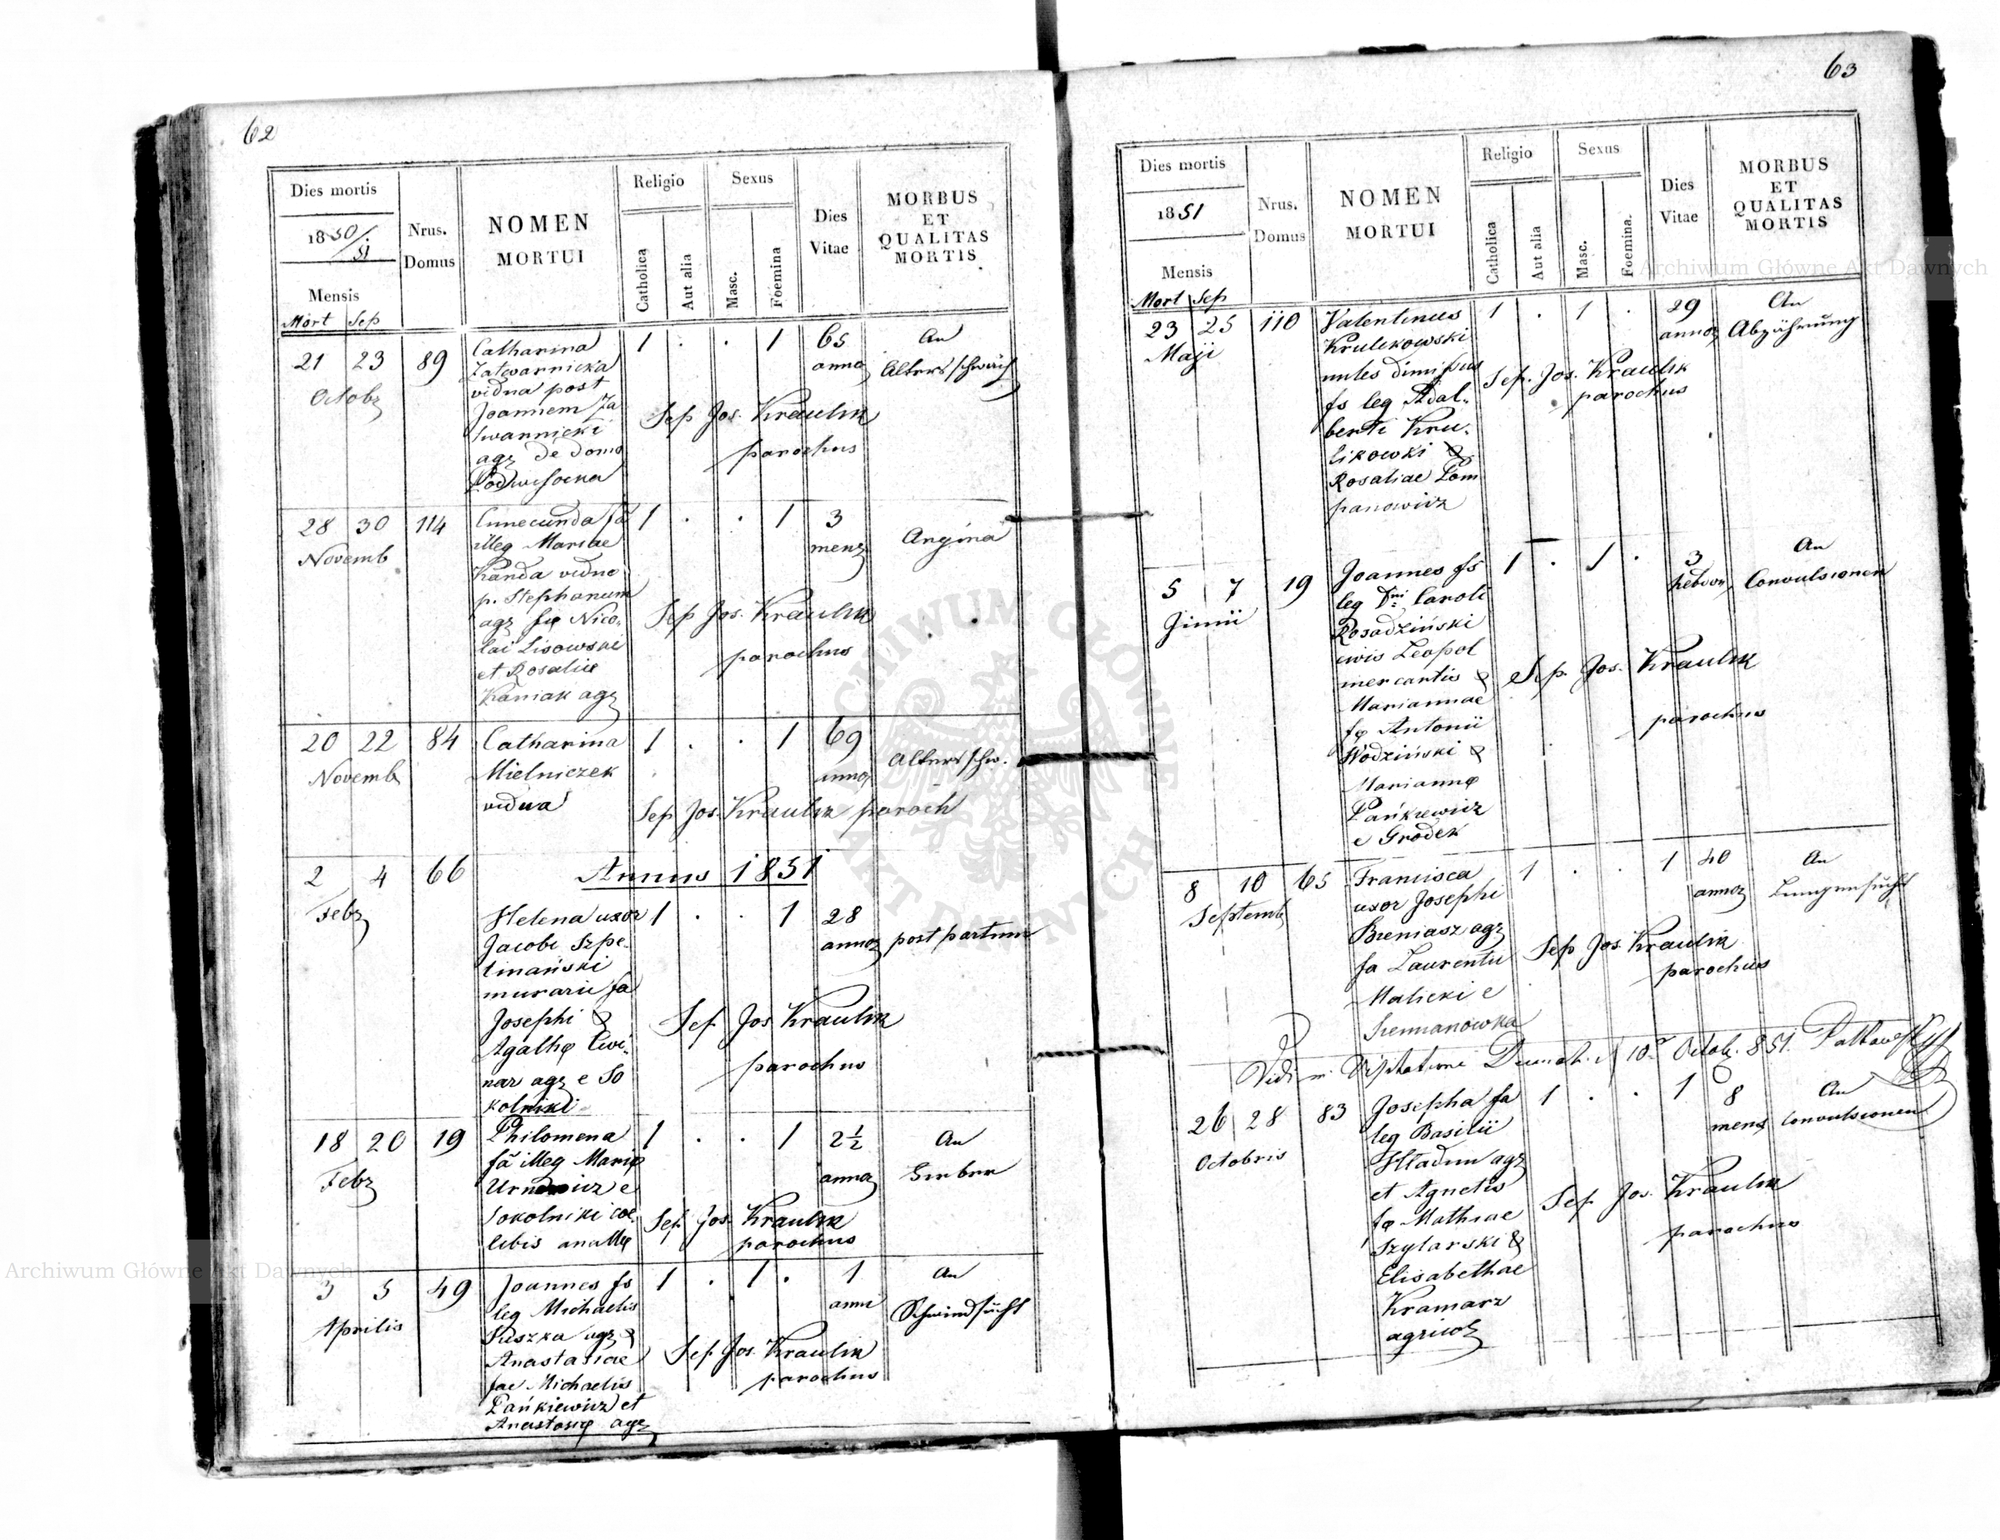 62
Dies mortis
1850/51
Mensis
Mort Sep
Nrus.
Domus
NOMEN
MORTUI
Religio
Catholica
Aut alia
Sexus
Masc.
Foemina
Dies
Vitae
MORBUS
ET
QUALITAS
MORTIS
21 23 89 Catharina 1 . . 1 65 An
Octobr
vidua post anno Altersschwäch
Joannem Za
Sep Jos. Kraulik
parochus
agr de domo
28 30 114 Cunecunda fa 1 . . 1 3 Angina
Novemb
illeg Mariae mens
Kanda vidue
p. Stephanum
agr fae Nico-
lai Lisowski
et Rosalie
Kaniak agr
Sep Jos. Kraulik
parochus
20 22 84 Catharina 1 . . 1 69 Altersschw.
Novemb
Mielniczek anno
vidua
Sep Jos. Kraulik paroch
2 4 66 Annus 1851
Febr
Helena uxor 1 . . 1 28
Jacobi Szpe- annor post partum
tmański
murarii fa
Josephi &
nar agr e So
kolniki
Sep Jos Kraulik
parochus
18 20 19 Philomena 1 . . 1 2½ An
Febr
fa illeg Marie annor
Sokolniki coe-
libis
Sep. Jos. Kraulik
parochus
3 5 49 Joannes fs 1 . 1 . 1 An
Aprilis
leg Michaelis anni Schwindsücht
Puszka agr &
Anastasiae
fae Michaelis
Pańkiewicz et
Anastasie agr
Sep Jos. Kraulik
parochus
63
Dies mortis
1851
Mensis
Mort Sep
Nrus.
Domus
NOMEN
MORTUI
Religio
Catholica
Aut alia
Sexus
Masc.
Foemina.
Dies
Vitae
MORBUS
ET
QUALITAS
MORTIS
23 25 110 Valentinus 1 . 1 . 29 An
Maji
Krulikowski annor Abzährung
miles dimissus
fs leg Adal-
berti Kru-
likowski &
Rosaliae Pom
panowicz
Sep. Jos. Kraulik
parochus
5 7 19 Joannes fs 1 . 1 . 3 An
Junii
leg Dni Caroli Convulsionen
Rosadziński
civis Leopol
mercantis &
Mariannae
fe Antonii
Wodziński &
Marianne
Pańkiewicz
e Grodek
Sep. Jos. Kraulik
parochus
8 10 65 Francisca 1 . . 1 40 An
Septemb
uxor Josephi annor Lungensücht
Breniasz agr
fa Laurentii
Malicki e
Siemianowka
Sep Jos. Kraulik
parochus
26 28 83 Josepha fa 1 . . 1 8 An
Octobris
leg Basilii mens Convulsionen
Hładun agr
et Agnetis
fe Mathiae
Szylarski &
Elisabethae
Kramarz
agricol
Sep. Jos. Kraulik
parochus
Archiwum Główne Akt Dawnych
Archiwum Główne Akt Dawnych
ARCHIWUM GŁÓWNE
AKT DAWNYCH